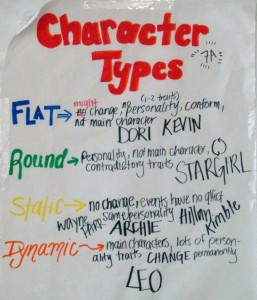 Character
Types
7A
might (1-2 traits)
FLAT → no change, no personality, conform,
not main character
DORI KEVIN
Round → Personality, not main character,
contradictory traits STARGIRL
Static → no change, events have no affect
same personality
Wayne Parr ARCHIE Hillari Kimble
Dynamic → main characters, lots of person-
ality traits CHANGE permanently
LEO